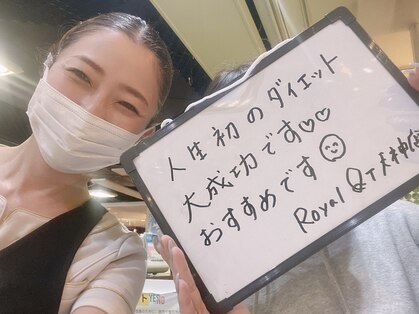 人生初のダイエット
大成功です♡♡
おすすめです☺
Royal QT天神店
YES